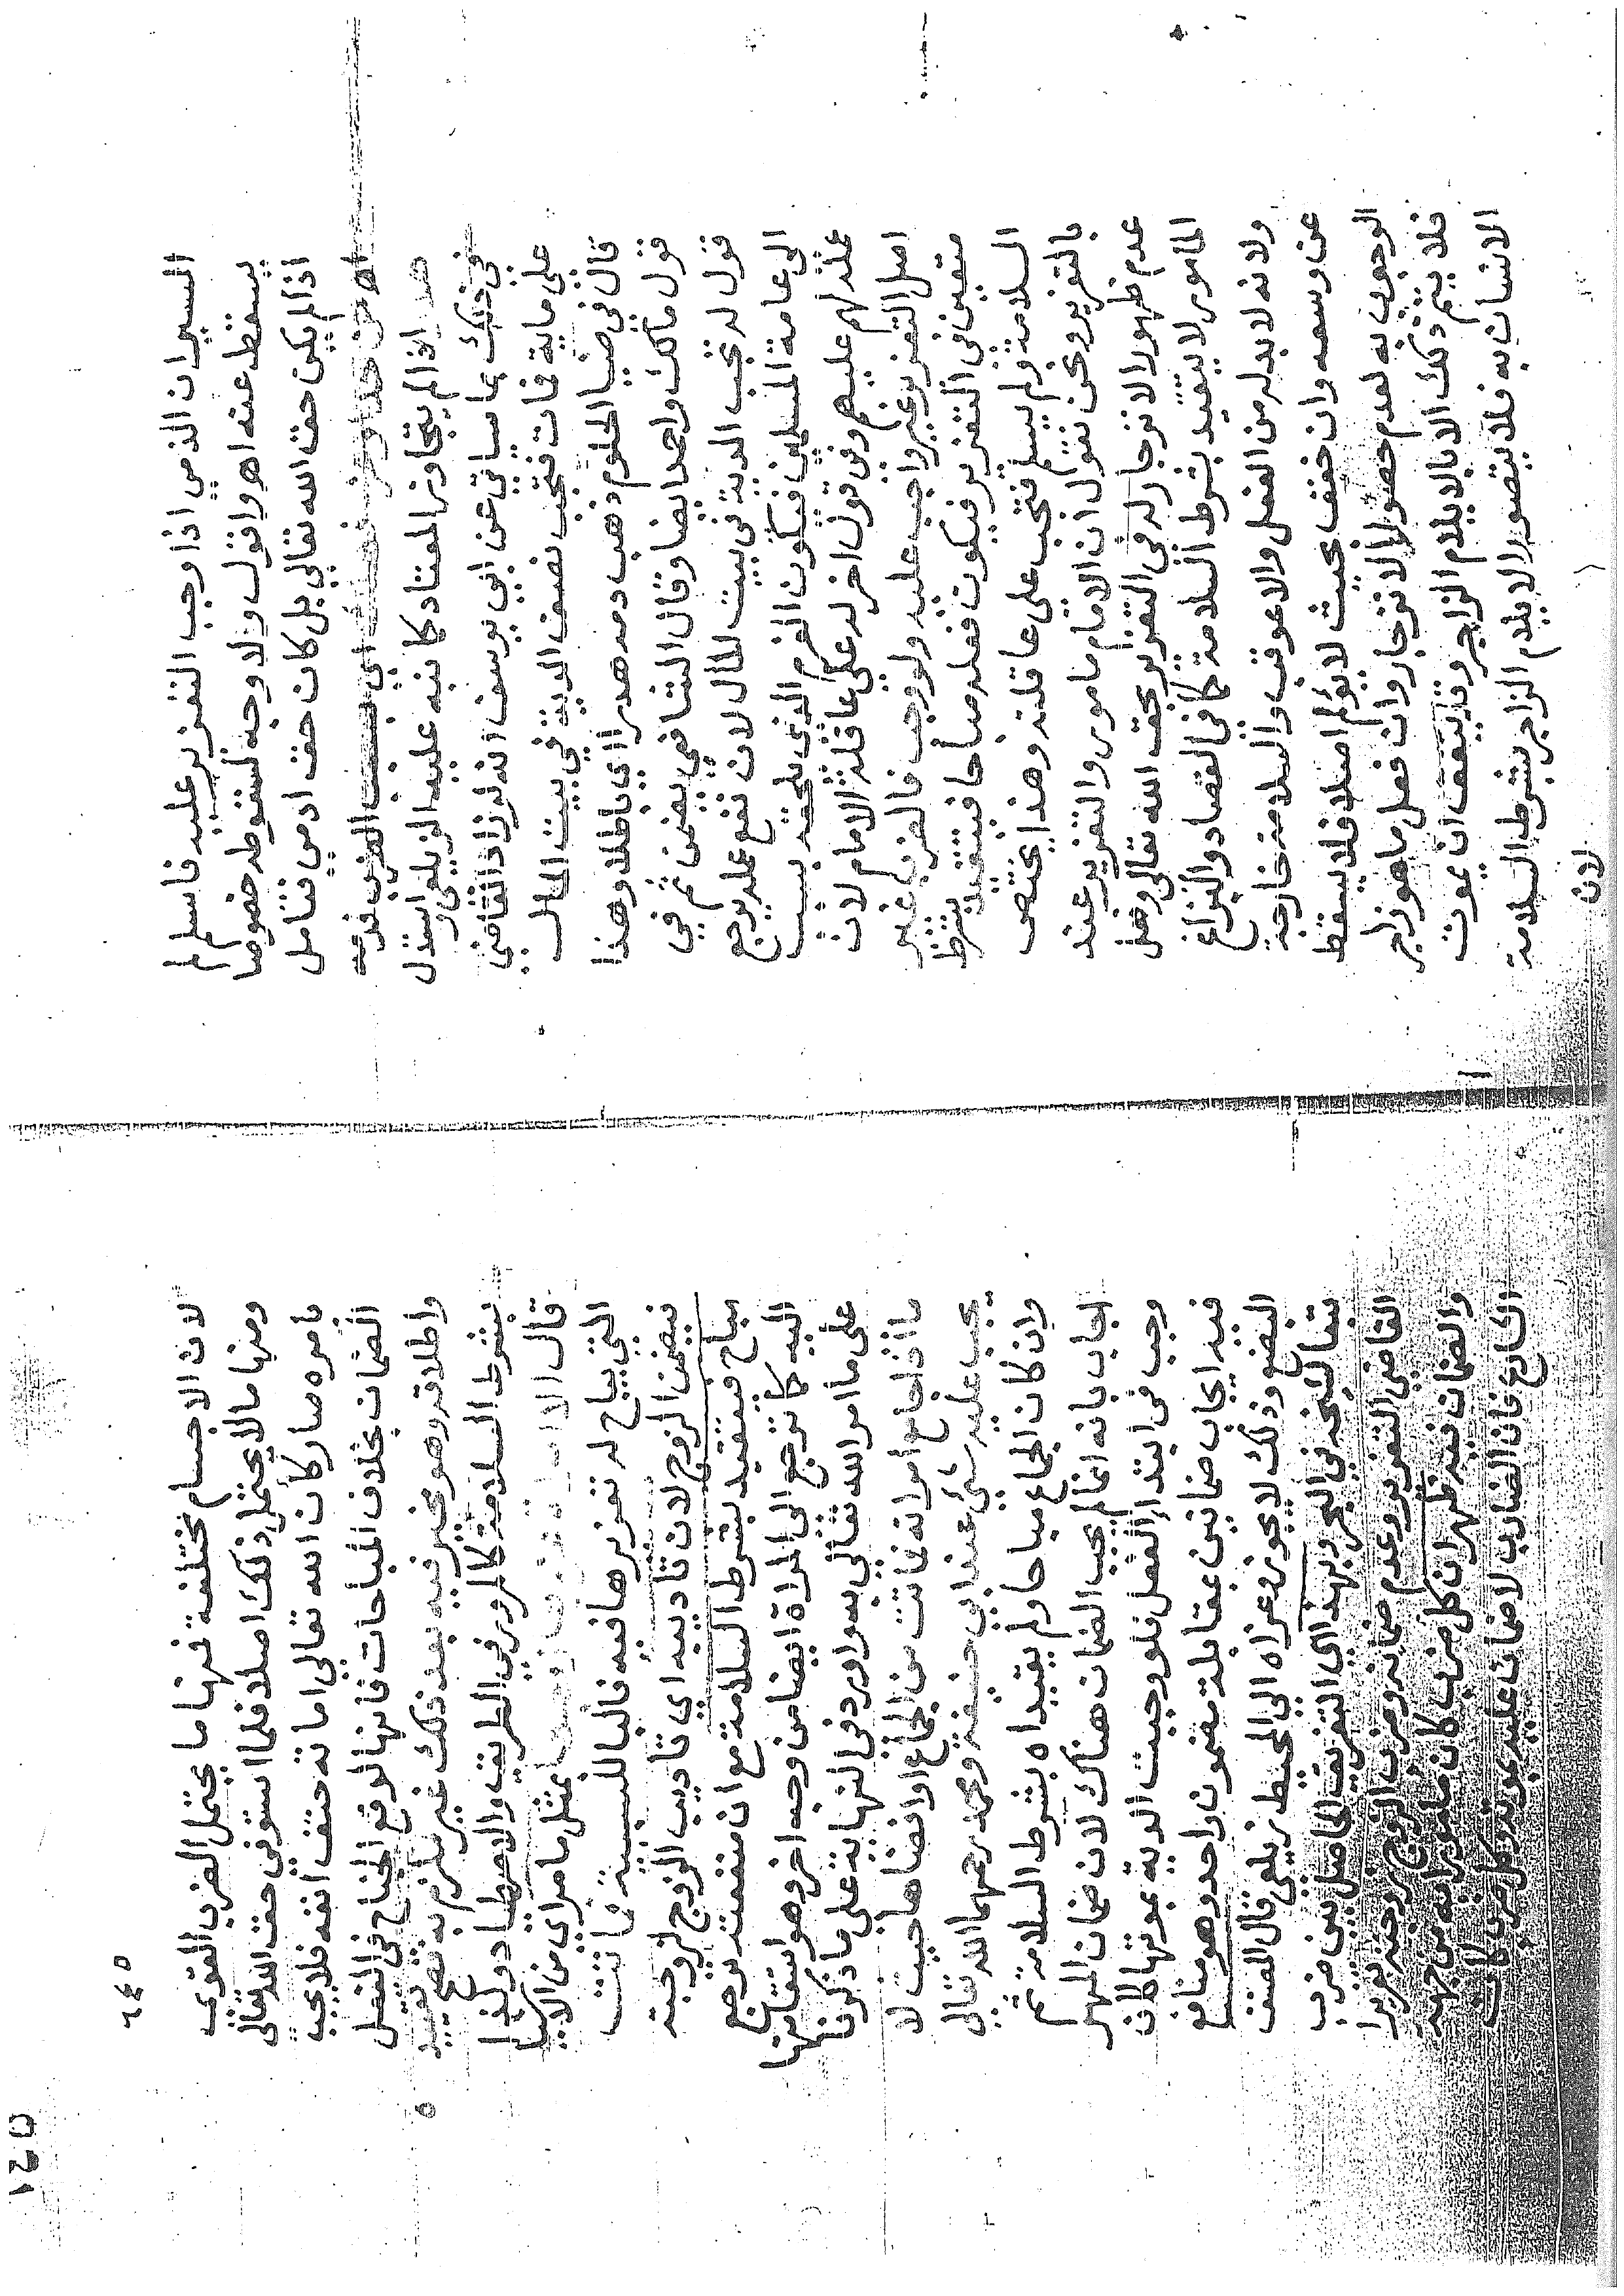 السيران الذمي اذا وجب التعزير عليه فاسلم لم
يسقط عنه اهـ واقول ولا وجه لسقوطه خصوصا
اذا لم يكن حق الله تعالى بل كان حق ادمي فتامل
فدمه
هدر اذا لم يتجاوز المعتاد كما نبه عليه الزيلعي واستدل
في ذلك بما سياتي عن ابي يوسف انه لو زاد القاضي
على ماية فمات فتجب نصف الدية في بيت المال
قال في ضيا الحلوم ذهب دمه هدرا اي باطلا وهذا
قول مالك واحمد ايضا وقال الشافعي يضمن ثم في
قول له تجب الدية في بيت المال لان نفع عمله يرجع
الى عامة المسلمين فيكون الغرم الذي يلحقه بسبب
عمله لهم عليهم وفي قول اخر له على عاقلة الامام لان
اصل التعزير غير واجب عليه ولو وجب فالضرب غير
متعين في التعزير فيكون فعله مباحا فيتقيد بشرط
السلامة ولم يسلم فتجب على عاقلته وهذا يختص
بالتعزير ونحن نقول ان الامام مامور والتعزير عند
عدم ظهور الانزجار له في التعزير بحق الله تعالى وفعل
المامور لا يتقيد بشرط السلامة كما في الفصاد والبزاغ
ولانه لا بد له من الفعل والا عوقب والسلامة خارجة
عن وسعه وان خفف بحيث لا يؤلم اصلا فلا يسقط
الوجوب به لعدم حصول الانزجار وان فعل ما هو زاجر
فلا يتم ذلك الا بالايلام الزاجر وقد يتفق ان يموت
الانسان به فلا يتصور الايلام الزاجر بشرط السلامة
لان
٢٤٥
لان الاجسام مختلفة فمنها ما يحتمل الضرب القوي
ومنها ما لا يحتمل ذلك اصلا فلما استوفى حق الله تعالى
بامره صار كان الله تعالى اماته حتف انفه فلا يجب
الضمان بخلاف المباحات فانها لوقع الجناح في الفعل
واطلاقه وهو مخير فيه بعد ذلك غير ملزم به فصح تقييده
بشرط السلامة كالمرور في الطريق والاصطياد ولذا
قال
التي يباح له تعزيرها فيه فالبا للسببية فماتت
فيضمن الزوج لان تاديبه اي تاديب الزوج لزوجته
مباح فيتقيد بشرط السلامة مع ان منفعته ترجع
اليه كما ترجع الى المراة ايضا من وجه اخر وهو استقامتها
على ما امر الله تعالى به واورد في النهاية على ما ذكرنا
ما اذا جامع امراته فماتت من الجماع او افضاها حيث لا
يجب عليه شيء عند ابي حنيفة ومحمد رحمهما الله تعالى
وان كان الجماع مباحا ولم يقيداه بشرط السلامة ثم
اجاب بانه انما لم يجب الضمان هناك لان ضمان المهر
وجب في ابتداء الفعل فلو وجبت الدية بموتها لكان
فيه ايجاب ضمانين بمقابلة مضمون واحد وهو منافع
البضع وذلك لا يجوز وعزاه الى المحيط زيلعي قال المصنف
تبعا لشيخه في البحر وبهذا اي التفريق الحاصل بين ضرب
القاضي التعزير وعدم ضمانه وضرب الزوج زوجته تعزيرا
والضمان فيه ظهر ان كل ضرب كان مامورا به من جهة
الشارع فان الضارب لا ضمان عليه بموته وكل ضرب كان